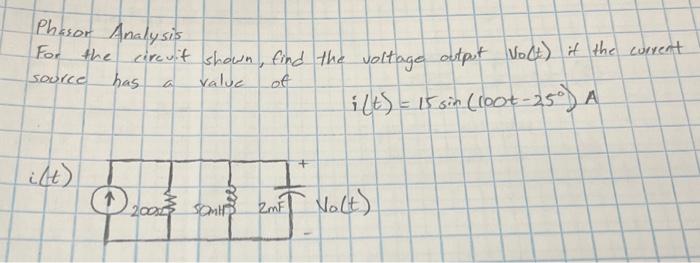 Phasor Analysis
For the circuit shown, find the voltage output Vo(t) if the current
source has a value of
i(t) = 15 sin(100t - 25°) A
i(t)
+
200Ω 50mH 2mF Vo(t)
-